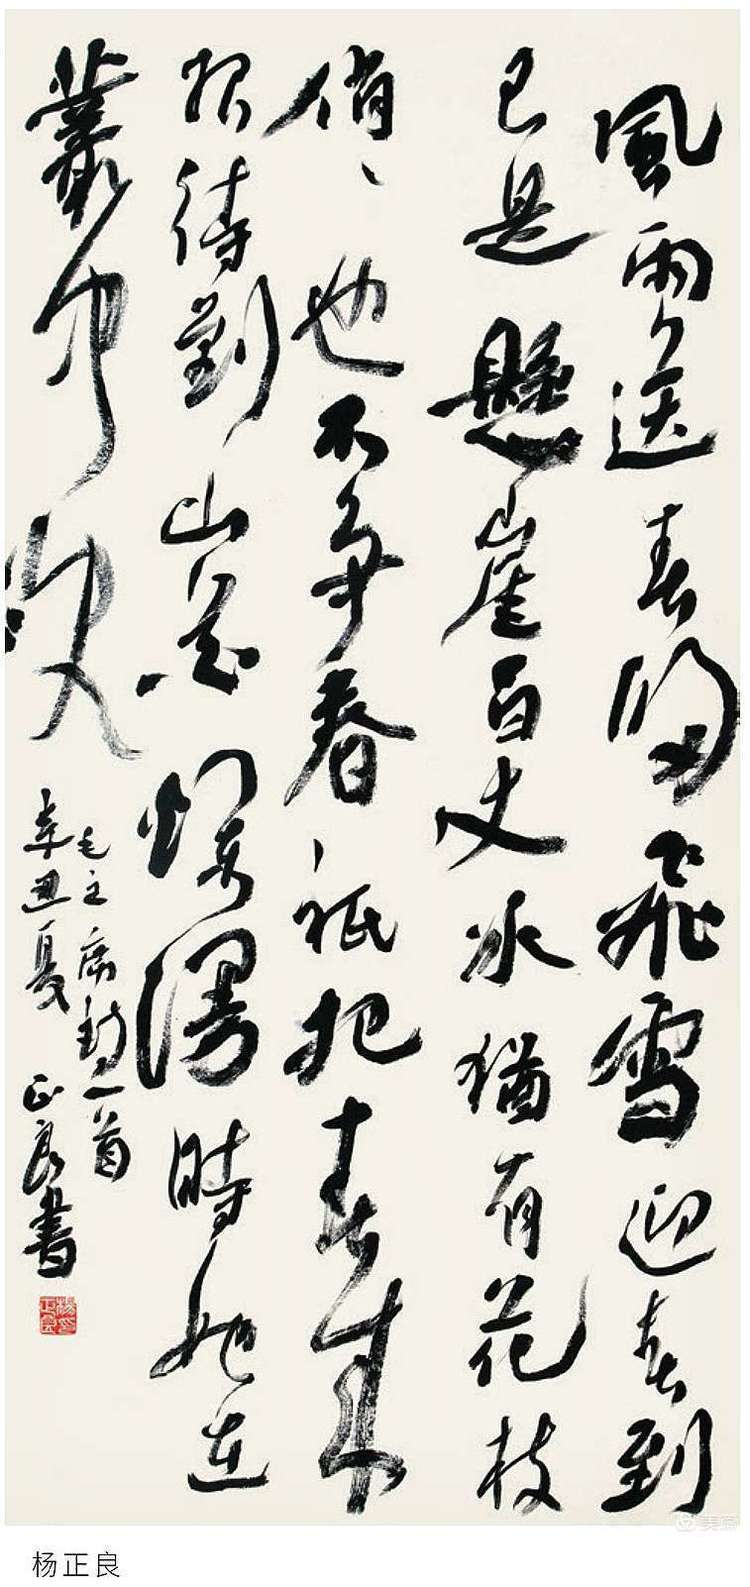 風雨送春歸飛雪迎春到
已是懸崖百丈冰猶有花枝
俏、也不爭春祇把春來
报待到山花爛漫時她在
叢中笑
毛主席詩一首
辛丑夏 正良書
杨正良